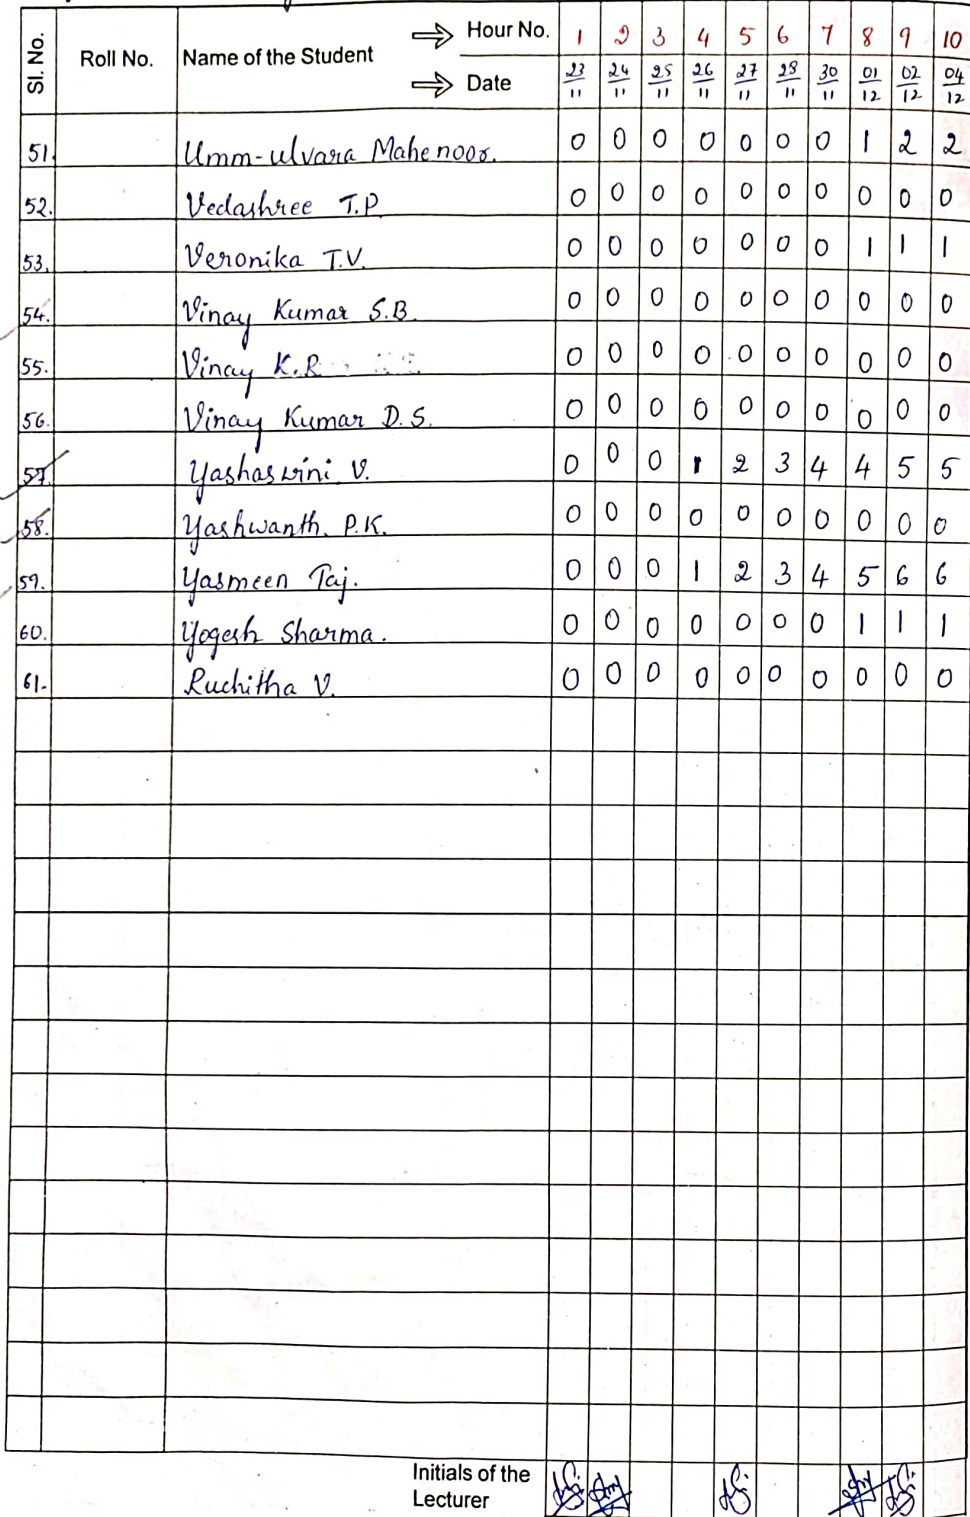 Sl. No. Roll No. Name of the Student ⇒ Hour No. 1 2 3 4 5 6 7 8 9 10
⇒ Date 23/11 24/11 25/11 26/11 27/11 28/11 30/11 01/12 02/12 04/12
51. Umm-ulvara Mahenoor. 0 0 0 0 0 0 0 1 2 2
52. Vedashree T.P 0 0 0 0 0 0 0 0 0 0
53. Veronika T.V. 0 0 0 0 0 0 0 1 1 1
54. Vinay Kumar S.B. 0 0 0 0 0 0 0 0 0 0
55. Vinay K.R 0 0 0 0 0 0 0 0 0 0
56. Vinay Kumar D.S. 0 0 0 0 0 0 0 0 0 0
57. Yashaswini V. 0 0 0 1 2 3 4 4 5 5
58. Yashwanth. P.K. 0 0 0 0 0 0 0 0 0 0
59. Yasmeen Taj. 0 0 0 1 2 3 4 5 6 6
60. Yogesh Sharma. 0 0 0 0 0 0 0 1 1 1
61. Ruchitha V. 0 0 0 0 0 0 0 0 0 0
Initials of the
Lecturer